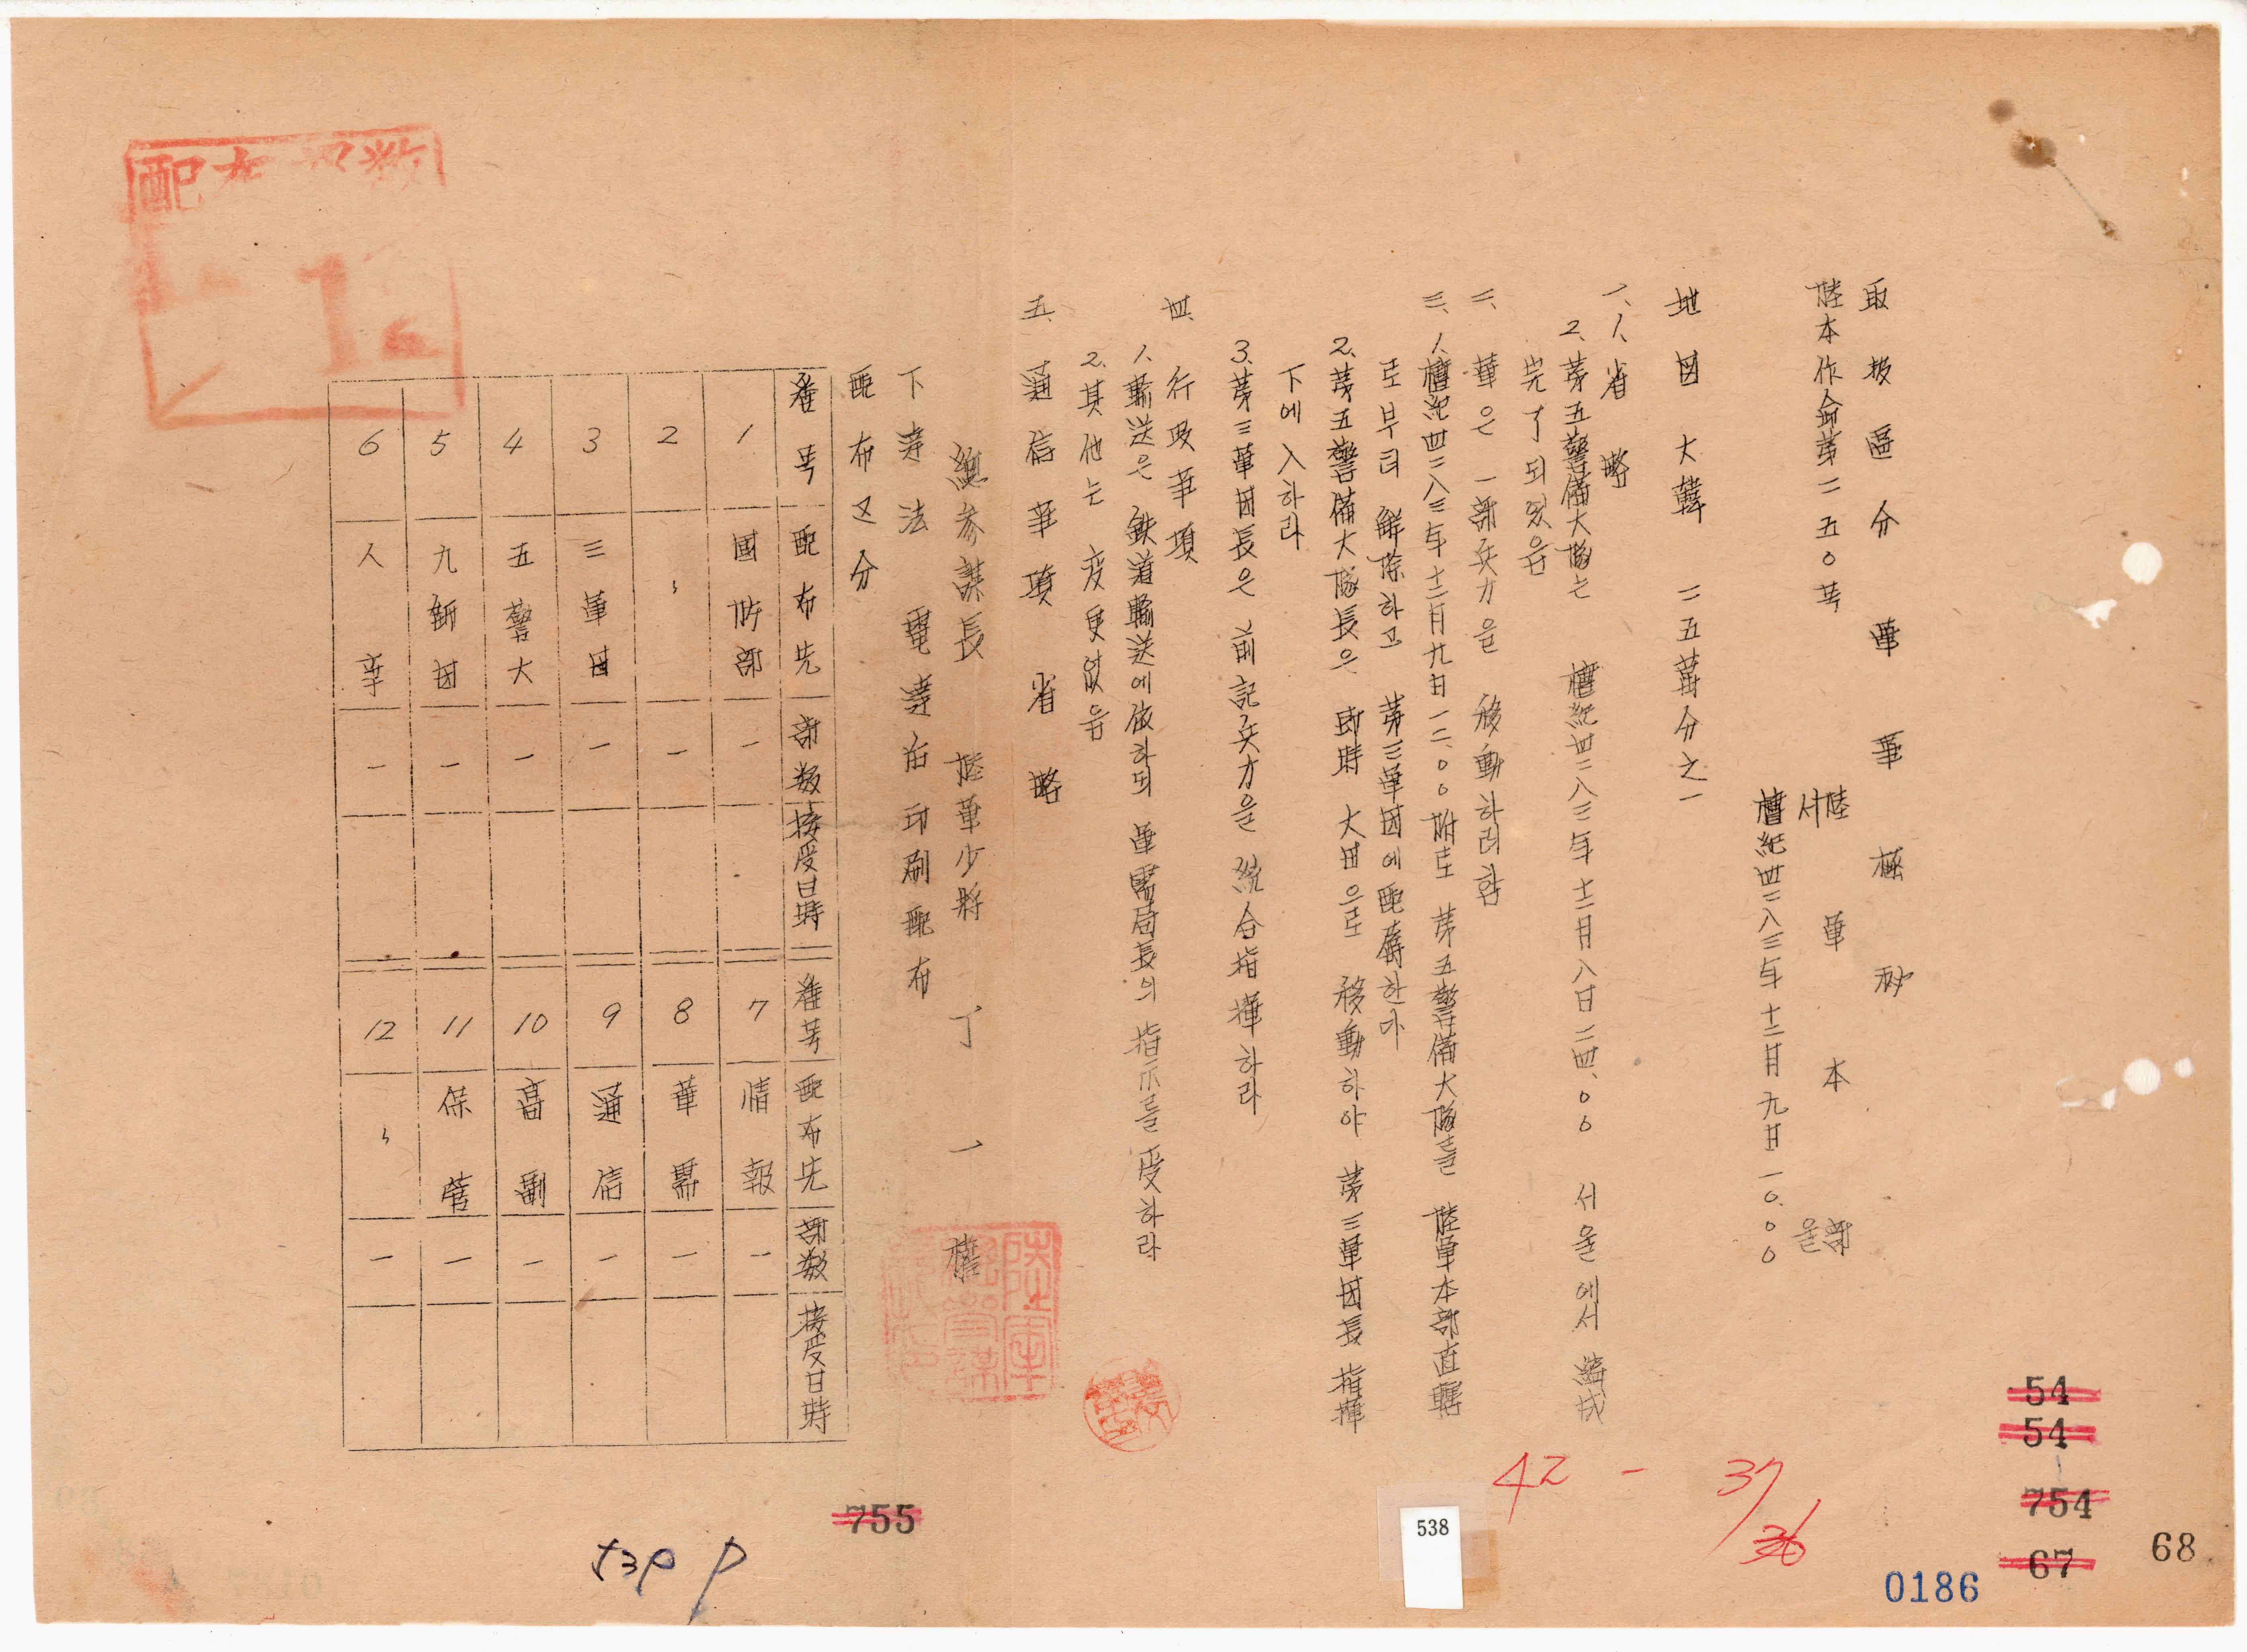 取扱區分 軍事極秘
陸本作命第二五0号
陸軍本部
서울
檀紀四二八三年十二月九日一0.00
地図 大韓 二五萬分之一
一、1、省略
2、第五警備大隊는 檀紀四二八三年十二月八日二四.00 서울에서 編成
完了되였음
二、軍은 一部兵力을 移動하려함
三、1、檀紀四二八三年十二月九日一二.00附로 第五警備大隊를 陸軍本部直轄
로부터 解除하고 第三軍団에配屬한다
2、第五警備大隊長은 即時 大田으로 移動하야 第三軍団長 指揮
下에 入하라
3、第三軍団長은 前記兵力을 統合指揮하라
四、行政事項
1、輸送은 鉄道輸送에依하되 軍需局長의 指示를 受하라
2、其他는 変更없음
五、通信事項 省略
總参謀長 陸軍少將 丁一權
下達法 電達后印刷配布
配布区分
番号 配布先 部数 接受日時 番号 配布先 部数 接受日時
1 國防部 一 7 情報 一
2 〃 一 8 軍需 一
3 三軍団 一 9 通信 一
4 五警大 一 10 高副 一
5 九師団 一 11 保管 一
6 人事 一 12 〃 一
配布
12
42 - 37
36
54
54
754
67
68
0186
538
755